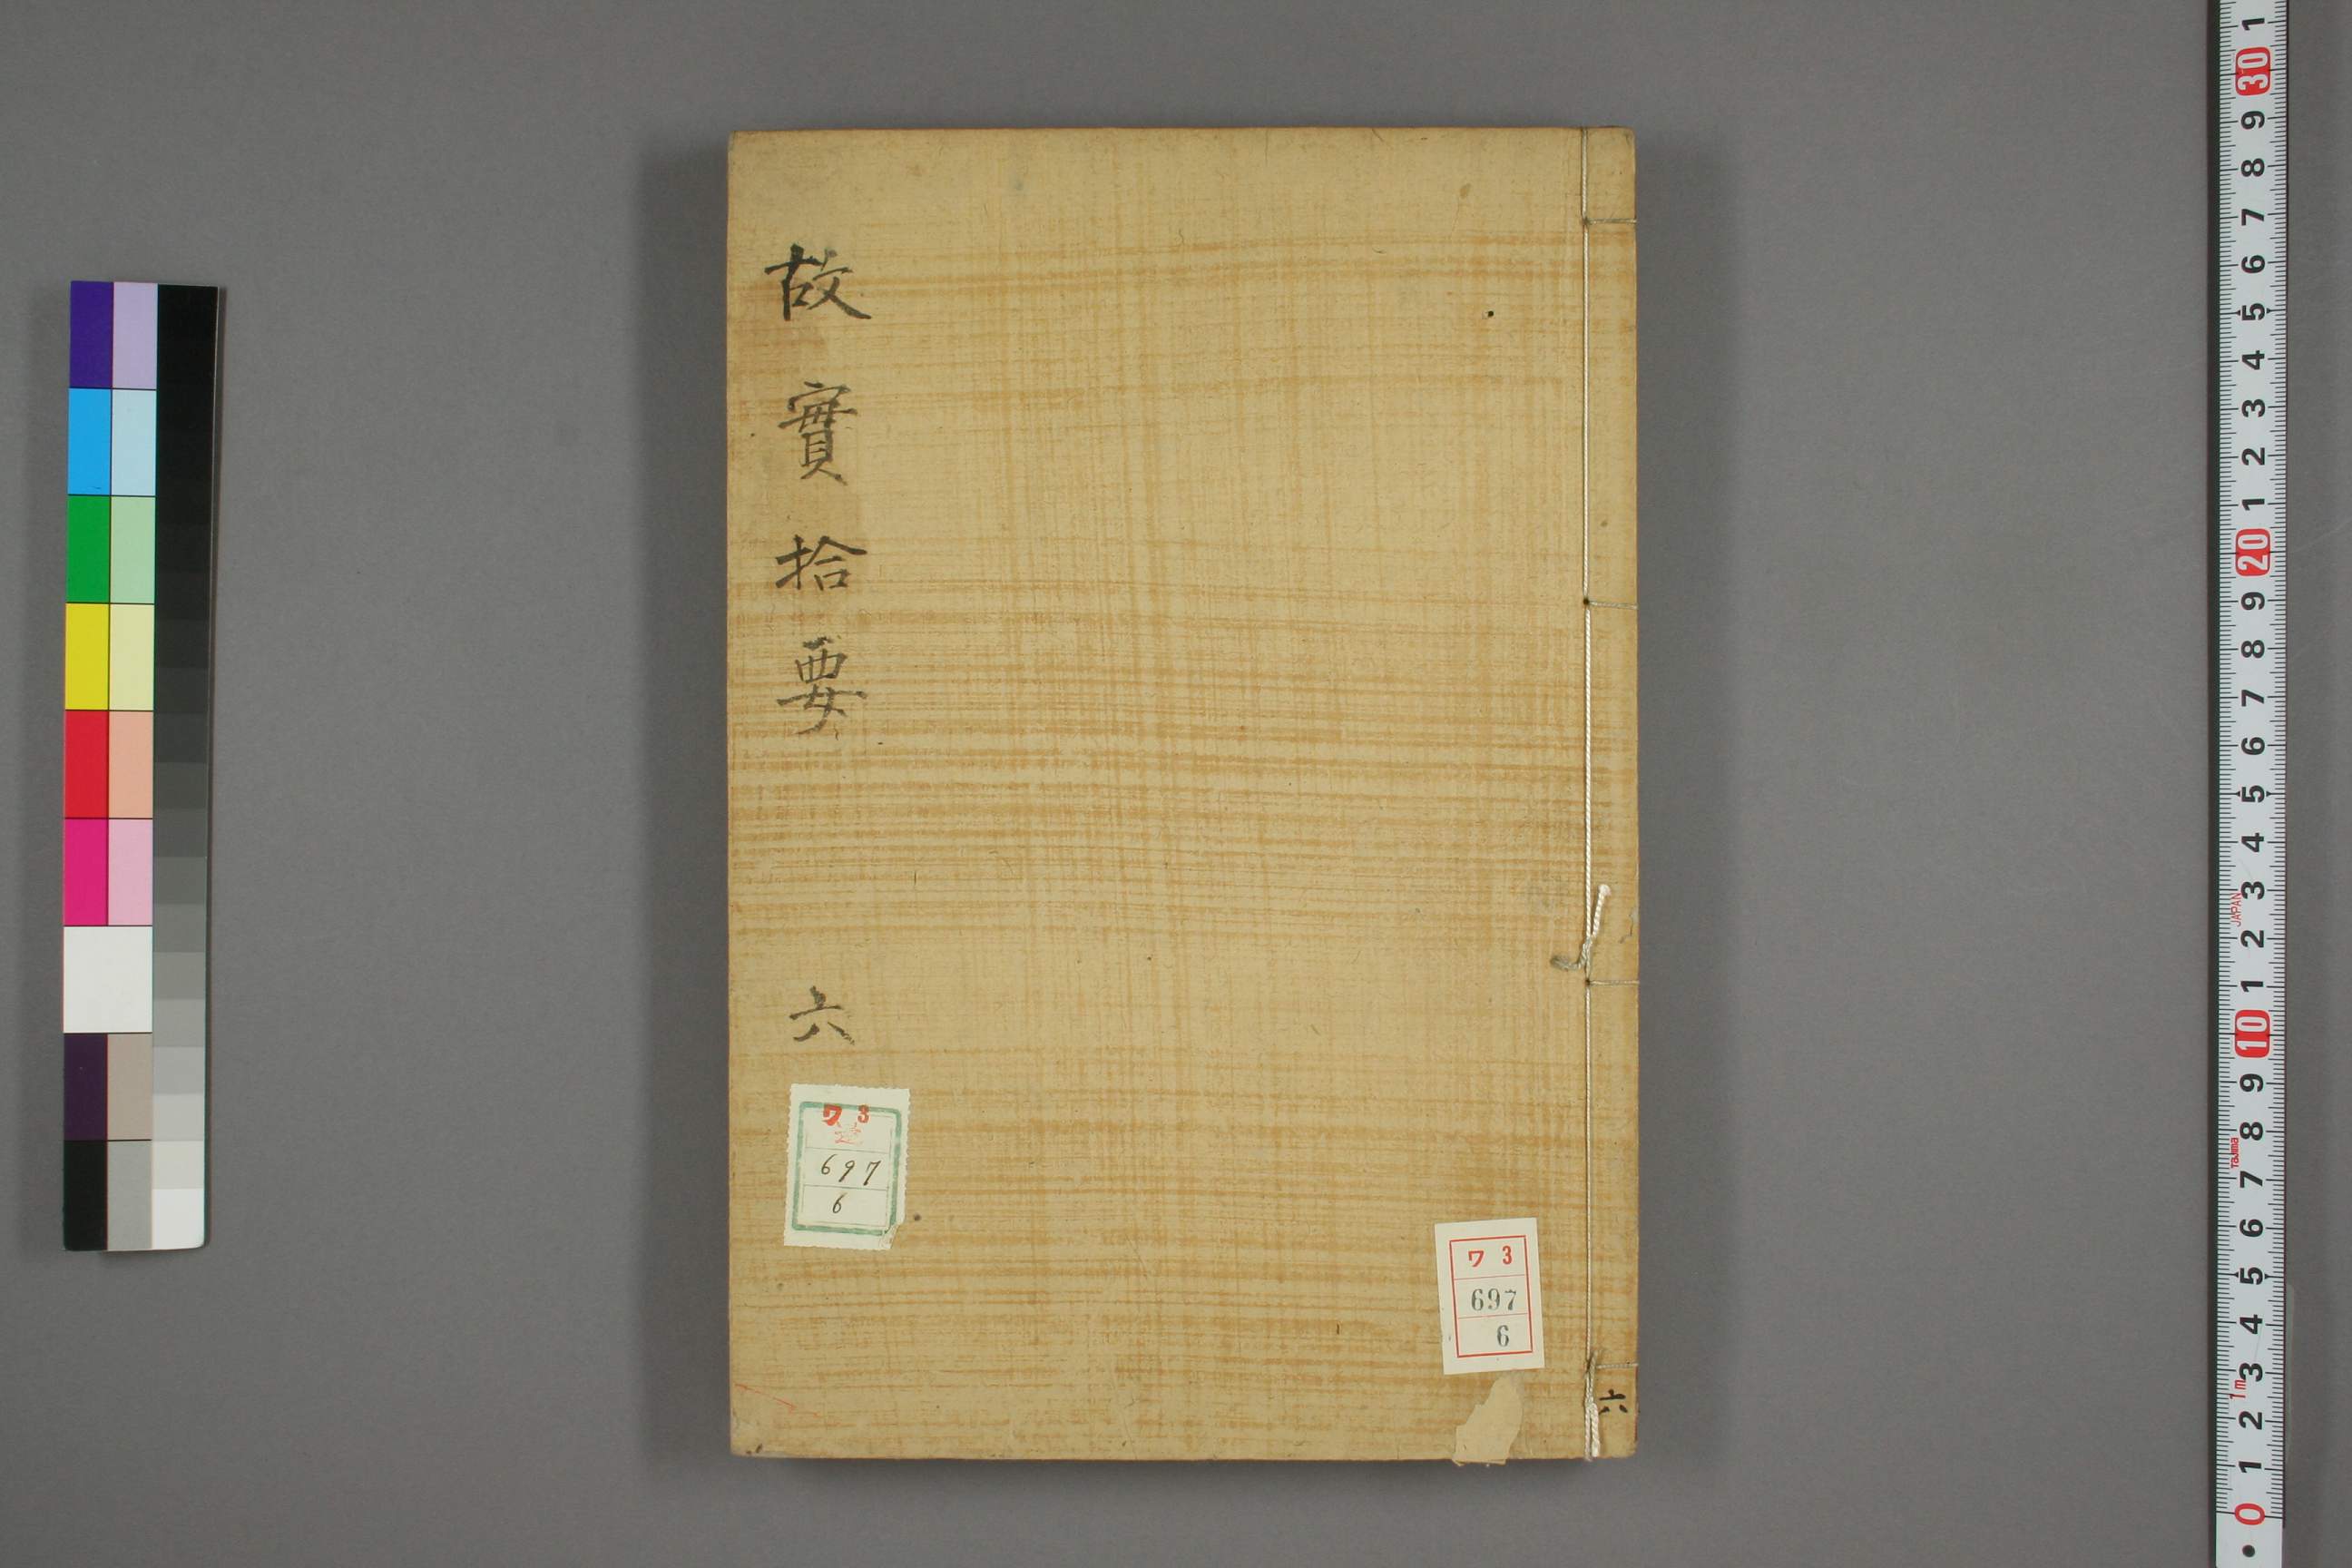 故實拾要 六
ワ 3
697
6
ワ 3
697
6
六
1
30
9
8
7
6
5
4
3
2
1
20
9
8
7
6
5
4
3
JAPAN
2
1
10
9
8
Tajima
7
6
5
4
3
1m
2
1
0